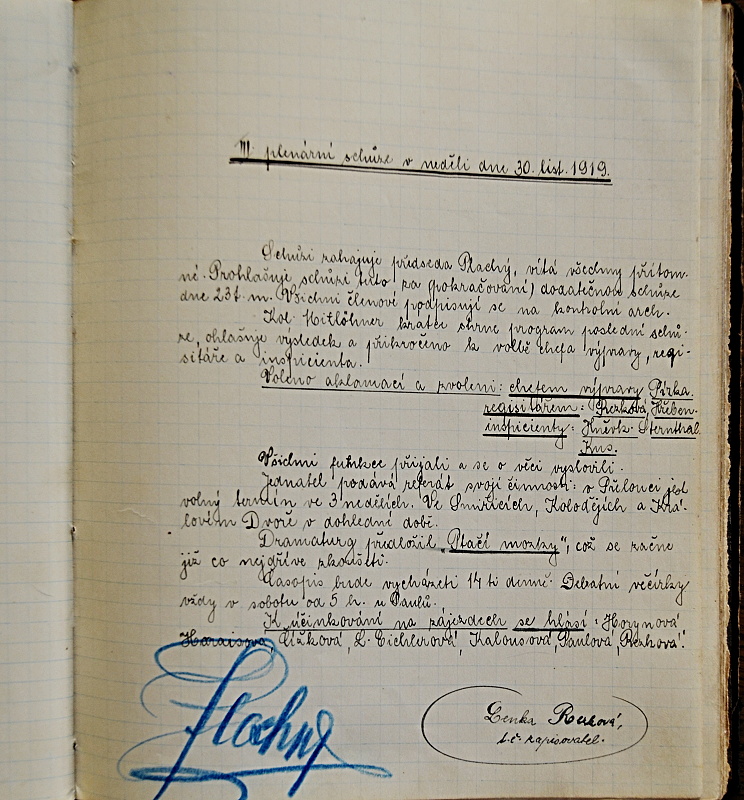 III. plenární schůze v neděli dne 30. list. 1919.
Schůzi zahajuje předseda Plachý, vítá všechny přítom-
né. Prohlašuje schůzi tuto za (pokračování) dodatečnou schůze
dne 23 t. m. Všichni členové podpisují se na kontrolní arch.
Kol. Mitlöhner krátce shrne program poslední schů-
ze, ohlašuje výsledek a přikročeno k volbě chefa výpravy, regi-
sitáře a inspicienta.
Voleno aklamací a zvoleni: chefem výpravy Pírka.
regisitářem: Rezková, Hřeben.
inspicienty: Hněvk. Sternthal.
Kus.
Všichni funkce přijali a se o věci vyslovili.
Jednatel podává referát svojí činnosti: v Přelouci jest
volný termín ve 3 nedělích. Ve Smiřicích, Kolodějích a Krá-
lovém Dvoře v dohlední době.
Dramaturg předložil „Ptačí mozky", což se začne
již co nejdříve zkoušeti.
Časopis bude vycházeti 14 ti denně. Debatní večírky
vždy v sobotu od 5 h. u Paulů.
K účinkování na zájezdech se hlásí: Hozynová
Čížková, L. Eichlerová, Kalousová, Paulová, Rezková.
Plachý
Lenka Rezková,
t. č. zapisovatel.